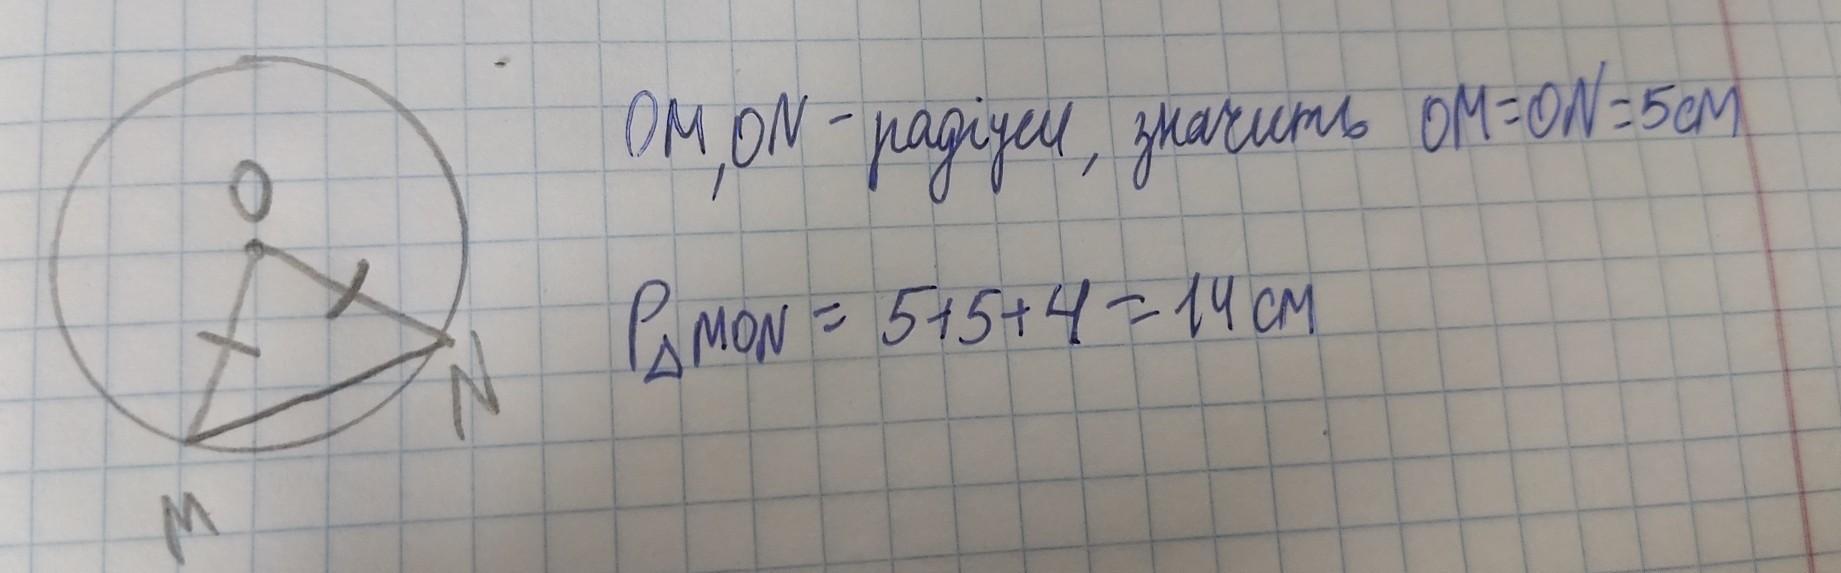 O
N
M
OM, ON - радіуси, значить OM=ON=5см
P△MON = 5+5+4=14 см